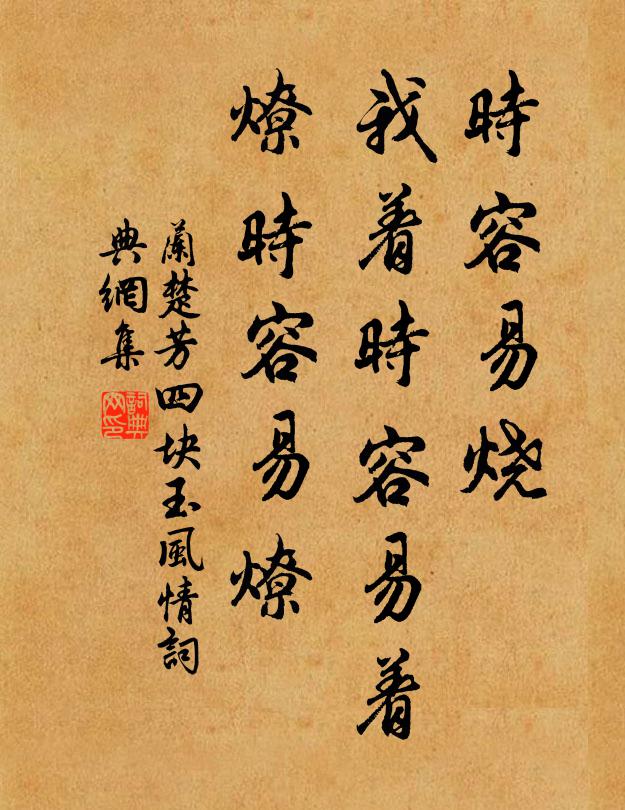 時容易烧
我着時容易着
燎時容易燎
蘭楚芳四块玉風情詞
典網集
詞典
网印